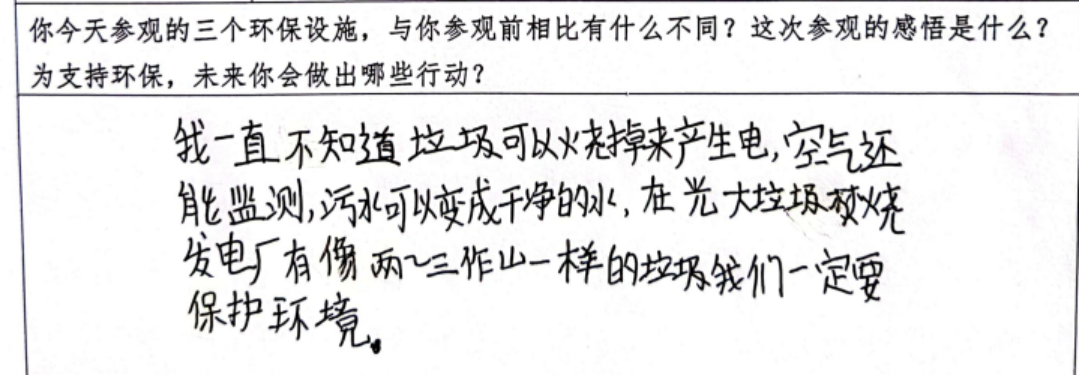 你今天参观的三个环保设施，与你参观前相比有什么不同？这次参观的感悟是什么？
为支持环保，未来你会做出哪些行动？
我一直不知道垃圾可以烧掉来产生电,空气还
能监测,污水可以变成干净的水,在光大垃圾焚烧
发电厂有像两~三作山一样的垃圾我们一定要
保护环境。